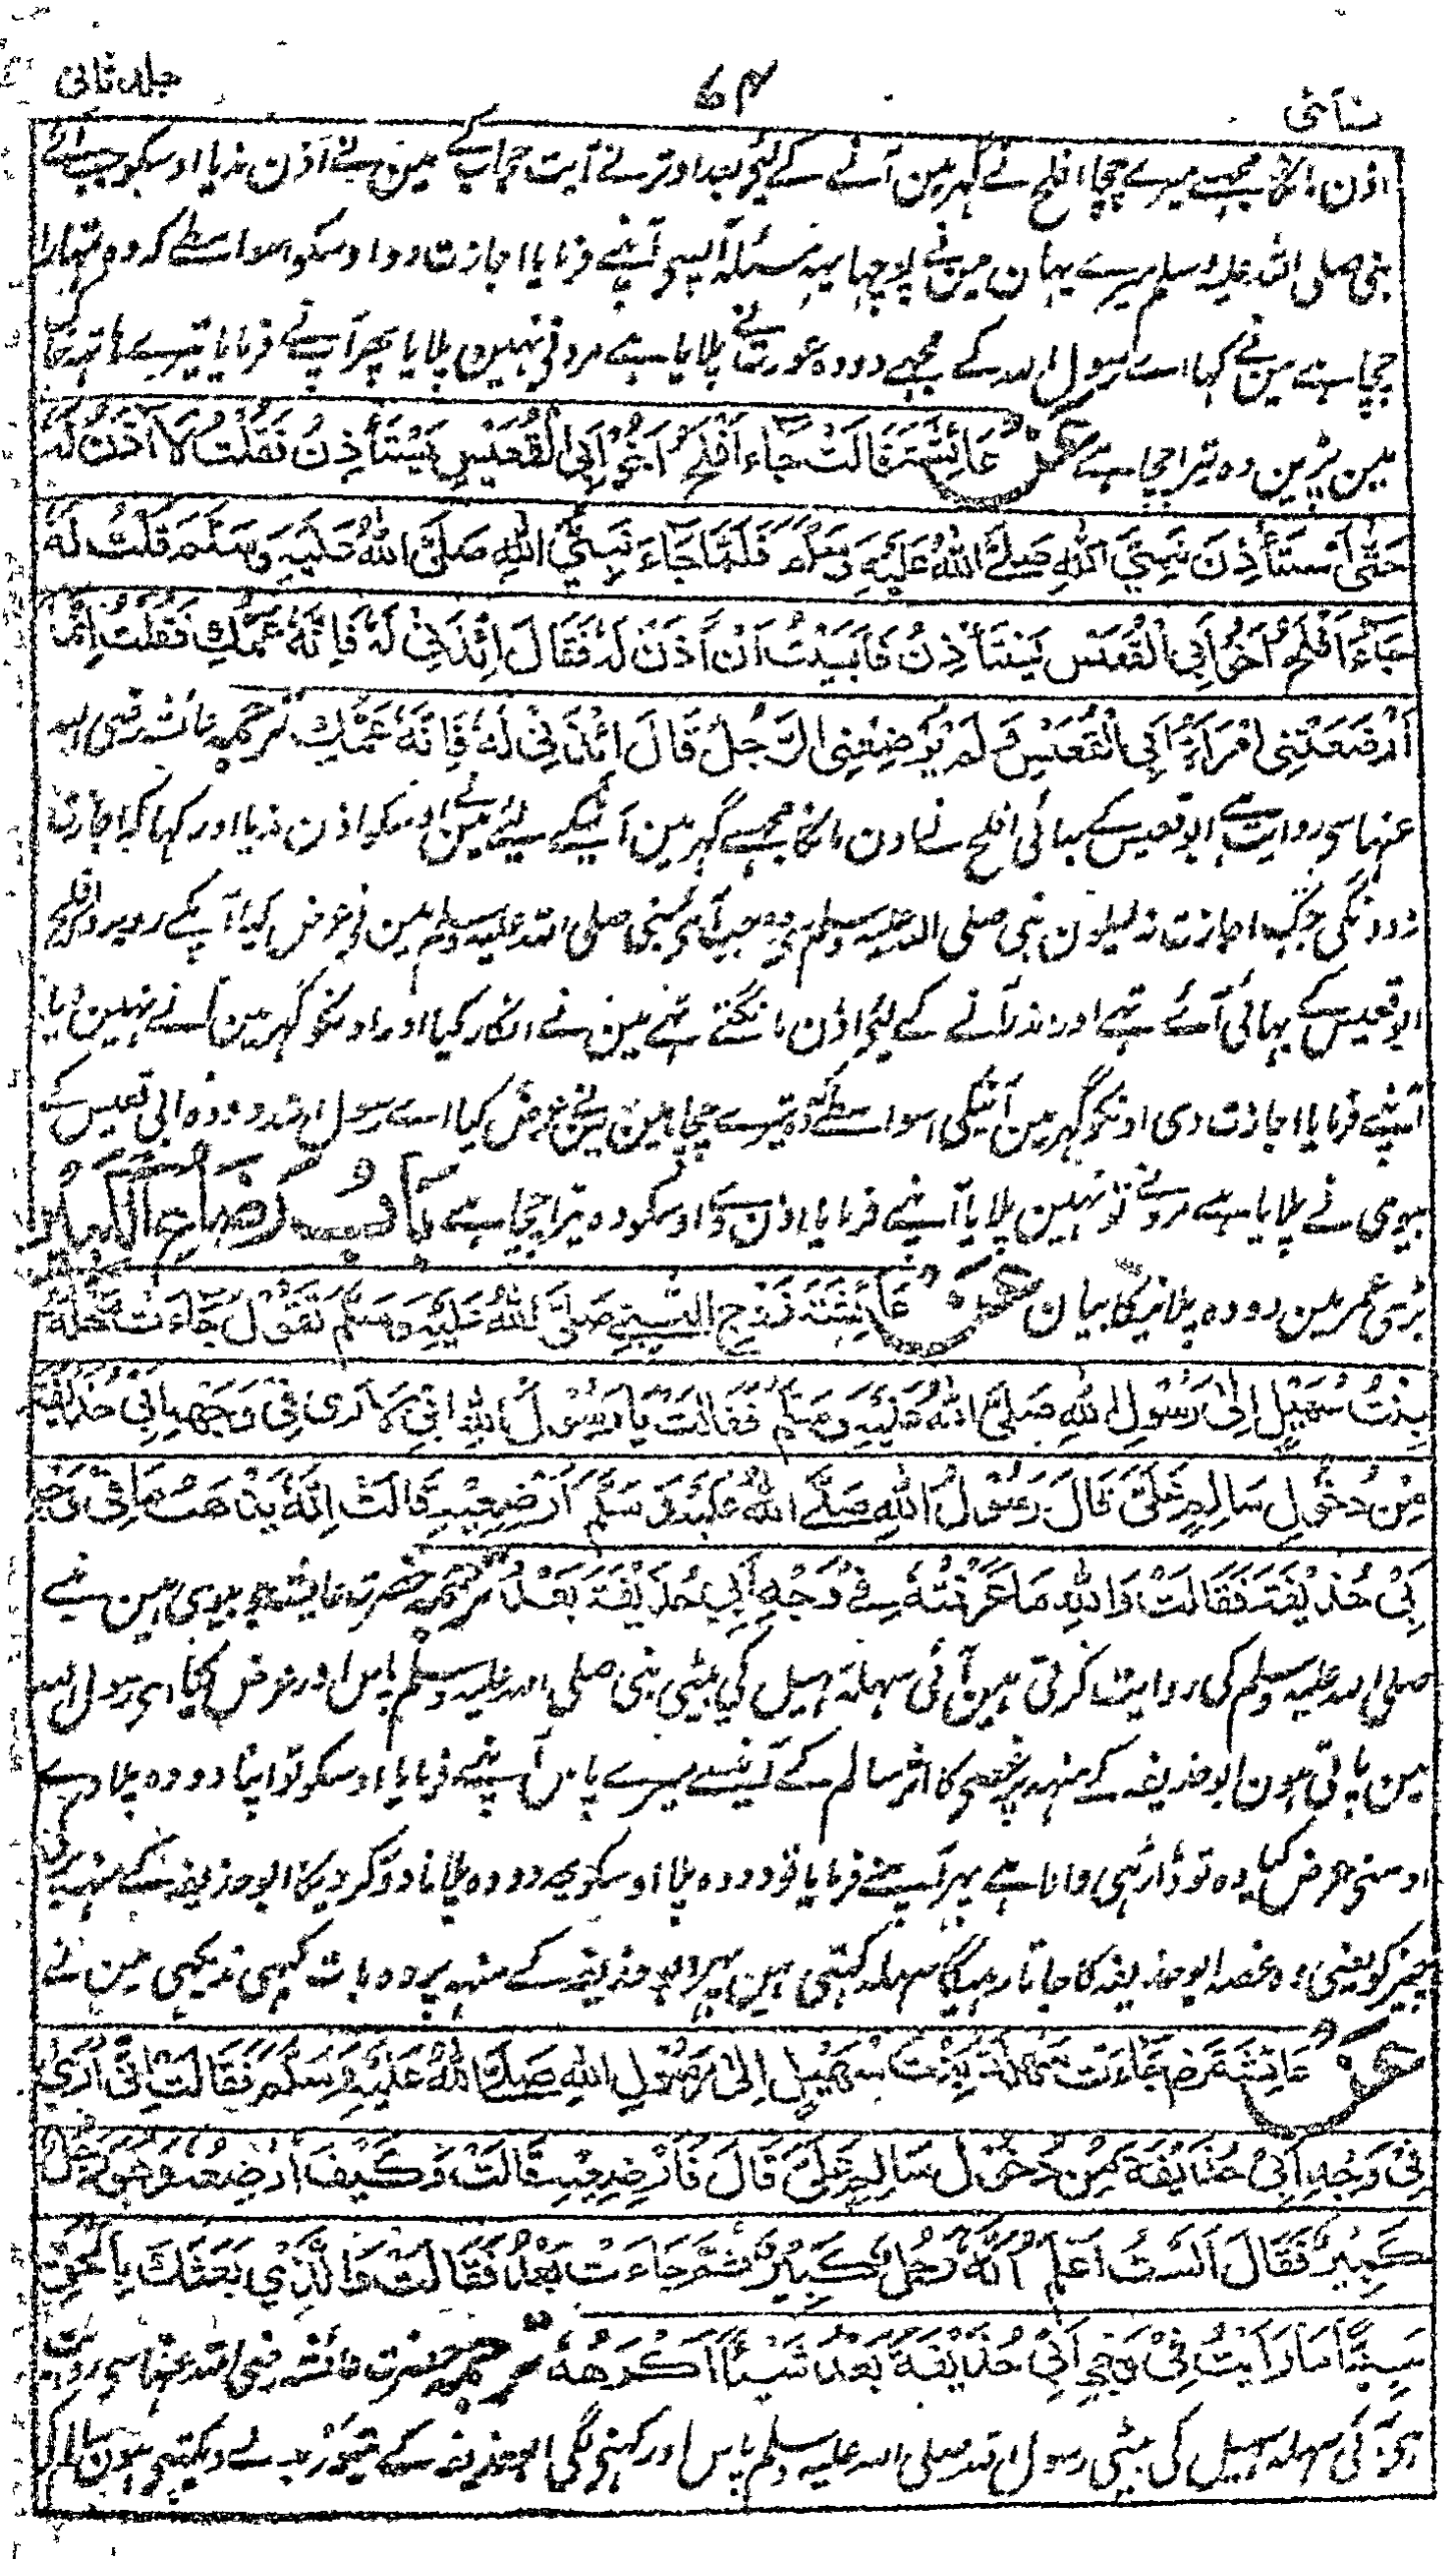 نسائی ۷۴ جلد ثانی
اذن مانگا مجہسے میرے چچا افلح نے گہر مین آنے کے لیئے بعد اوترنے آیت حجاب کے مین نے اذن ندیا اوسکو جب آئے
نبی صلی اللہ علیہ وسلم میرے یہان مین نے پوچہا یہہ مسئلہ آپسے آپنے فرمایا اجازت دو اوسکو اسواسطے کہ وہ تمہارا
چچا ہے مین نے کہا اے رسول اللہ کے مجہے دودہ عورت نے پلایا ہے مرد نے نہین پلایا پہر آپنے فرمایا تیرے ہاتہہ خاک
مین پڑین وہ تیرا چچا ہے عَنْ عَائِشَۃَ قَالَتْ جَاءَ اَفْلَحُ اَخُوْ اَبِی الْقُعَیْسِ یَسْتَأْذِنُ فَقُلْتُ لَا اٰذَنُ لَہٗ
حَتّٰی اَسْتَأْذِنَ نَبِیَّ اللّٰہِ صَلَّی اللّٰہُ عَلَیْہِ وَسَلَّمَ فَلَمَّا جَاءَ نَبِیُّ اللّٰہِ صَلَّی اللّٰہُ عَلَیْہِ وَسَلَّمَ قُلْتُ لَہٗ
جَاءَ اَفْلَحُ اَخُوْ اَبِی الْقُعَیْسِ یَسْتَأْذِنُ فَاَبَیْتُ اَنْ اٰذَنَ لَہٗ فَقَالَ ائْذَنِیْ لَہٗ فَاِنَّہٗ عَمُّکِ فَقُلْتُ اِنَّمَا
اَرْضَعَتْنِی امْرَاَۃُ اَبِی الْقُعَیْسِ وَلَمْ یُرْضِعْنِی الرَّجُلُ قَالَ ائْذَنِیْ لَہٗ فَاِنَّہٗ عَمُّکِ ترجمہ عائشہ رضی اللہ
عنہا سے روایت ہے ابو قعیس کے بہائی افلح نے اذن مانگا مجہسے گہر مین آنیکے لیئے مین نے اوسکو اذن ندیا اور کہا کہ اجازت
ندونگی جبتک اجازت نہ لیلون نبی صلی اللہ علیہ وسلم سے جب آئے نبی صلی اللہ علیہ وسلم مین نے عرض کیا آپکے روبرو افلح
ابو قعیس کے بہائی آئے تہے اور اندر آنے کے لیئے اذن مانگتے تہے مین نے انکار کیا اور اونکو گہر مین آنے نہین دیا
آپنے فرمایا اجازت دی اونکو گہر مین آنیکی اسواسطے کہ وہ تیرے چچا ہین مین نے عرض کیا اے رسول اللہ دودہ ابی قعیس کے
بیوی نے پلایا ہے مرد نے تو نہین پلایا آپنے فرمایا اذن دے اوسکو وہ تیرا چچا ہے بَابُ رَضَاعِ الْکَبِیْرِ
بڑی عمر مین دودہ پلانیکا بیان عَنْ عَائِشَۃَ زَوْجِ النَّبِیِّ صَلَّی اللّٰہُ عَلَیْہِ وَسَلَّمَ تَقُوْلُ جَاءَتْ سَہْلَۃُ
بِنْتُ سُہَیْلٍ اِلٰی رَسُوْلِ اللّٰہِ صَلَّی اللّٰہُ عَلَیْہِ وَسَلَّمَ فَقَالَتْ یَا رَسُوْلَ اللّٰہِ اِنِّیْ لَاَرٰی فِیْ وَجْہِ اَبِیْ حُذَیْفَۃَ
مِنْ دُخُوْلِ سَالِمٍ عَلَیَّ قَالَ رَسُوْلُ اللّٰہِ صَلَّی اللّٰہُ عَلَیْہِ وَسَلَّمَ اَرْضِعِیْہِ قَالَتْ اِنَّہٗ لَذُوْ لِحْیَۃٍ فَقَالَ اَرْضِعِیْہِ یَذْہَبْ مَا فِیْ وَجْہِ
اَبِیْ حُذَیْفَۃَ فَقَالَتْ وَاللّٰہِ مَا عَرَفْتُہٗ فِیْ وَجْہِ اَبِیْ حُذَیْفَۃَ بَعْدُ ترجمہ حضرت عایشہ جو بیوی ہین نبی
صلی اللہ علیہ وسلم کی روایت کرتی ہین آئی سہلہ سہیل کی بیٹی نبی صلی اللہ علیہ وسلم پاس اور عرض کیا اے رسول اللہ
مین پاتی ہون ابو حذیفہ کے منہہ پر غصی کا اثر سالم کے آنیسے میرے پاس آپنے فرمایا اوسکو تو اپنا دودہ پلا دے
اوسنے عرض کیا وہ تو ڈاڑہی والا ہے پہر آپنے فرمایا تو دودہ پلا اوسکو یہ دودہ پلانا دور کر دیگا ابو حذیفہ کے منہہ پر کی
چیز کو یعنی وہ غصہ ابو حذیفہ کا جاتا رہیگا سہلہ کہتی ہین پہر ابو حذیفہ کے منہہ پر وہ بات کبہی ندیکہی مین نے
عَنْ عَائِشَۃَ رض جَاءَتْ سَہْلَۃُ بِنْتُ سُہَیْلٍ اِلٰی رَسُوْلِ اللّٰہِ صَلَّی اللّٰہُ عَلَیْہِ وَسَلَّمَ فَقَالَتْ اِنِّیْ اَرٰی
فِیْ وَجْہِ اَبِیْ حُذَیْفَۃَ مِنْ دُخُوْلِ سَالِمٍ عَلَیَّ قَالَ فَاَرْضِعِیْہِ قَالَتْ وَکَیْفَ اُرْضِعُہٗ وَہُوَ رَجُلٌ
کَبِیْرٌ فَقَالَ اَلَسْتُ اَعْلَمُ اَنَّہٗ رَجُلٌ کَبِیْرٌ ثُمَّ جَاءَتْ بَعْدُ فَقَالَتْ وَالَّذِیْ بَعَثَکَ بِالْحَقِّ
نَبِیًّا مَا رَاَیْتُ فِیْ وَجْہِ اَبِیْ حُذَیْفَۃَ بَعْدُ شَیْئًا اَکْرَہُہٗ ترجمہ حضرت عائشہ رضی اللہ عنہا سے روایت
ہے آئی سہلہ سہیل کی بیٹی رسول اللہ صلی اللہ علیہ وسلم پاس اور کہنے لگی ابو حذیفہ کے تیور بدلے دیکہتی ہون سالم کے